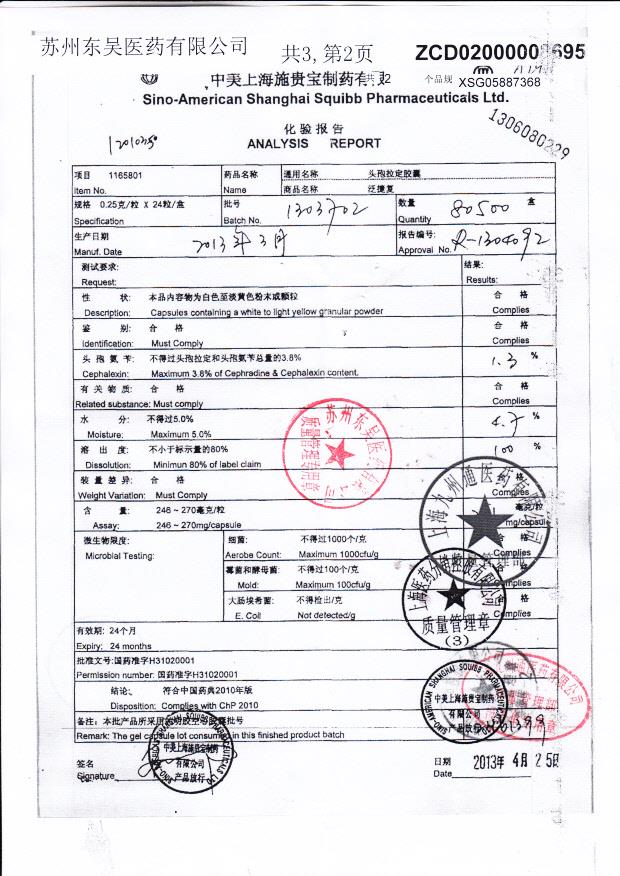 苏州东吴医药有限公司 共3,第2页 ZCD02000001695
中美上海施贵宝制药有限 个品规 XSG05887368
Sino-American Shanghai Squibb Pharmaceuticals Ltd.
1306080229
化验报告
ANALYSIS REPORT
项目 1165801 药品名称 通用名称 头孢拉定胶囊
Item No. Name 商品名称 泛捷复
规格 0.25克/粒 X 24粒/盒 批号 1303702 数量 80500 盒
Specification Batch No. Quantity
生产日期 2013年3月 报告编号: R-1304092
Manuf. Date Approval No.
测试要求: 结果:
Request: Results:
性 状: 本品内容物为白色至淡黄色粉末或颗粒 合 格
Description: Capsules containing a white to light yellow granular powder Complies
鉴 别: 合 格 合 格
Identification: Must Comply Complies
头 孢 氨 苄: 不得过头孢拉定和头孢氨苄总量的3.8% 1.3 %
Cephalexin: Maximum 3.8% of Cephradine & Cephalexin content.
有 关 物 质: 合 格 合 格
Related substance: Must comply Complies
水 分: 不得过5.0% 4.7 %
Moisture: Maximum 5.0%
溶 出 度: 不小于标示量的80% 100 %
Dissolution: Minimun 80% of label claim
装 量 差 异: 合 格 格
Weight Variation: Must Comply Complies
含 量: 246 ~ 270毫克/粒 毫克/粒
Assay: 246 ~ 270mg/capsule mg/capsule
微生物限度: 细菌: 不得过1000个/克 合 格
Microbial Testing: Aerobe Count: Maximum 1000cfu/g Complies
霉菌和酵母菌: 不得过100个/克 格
Mold: Maximum 100cfu/g
大肠埃希菌: 不得检出/克 格
E. Coli Not detected/g Complies
有效期: 24个月
Expiry: 24 months
批准文号:国药准字H31020001
Permission number: 国药准字H31020001
结论、 符合中国药典2010年版
Disposition: Complies with ChP 2010
备注:本批产品所采用 胶囊批号
Remark: The gel capsule lot consumed in this finished product batch
签名 日期 2013年 4月 25日
Signature Date
苏州东吴医药有限公司
质量管理专用章
上海九州通医药有限公司
管理部
上海医药分销控股有限公司
质量管理章
(3)
SINO-AMERICAN SHANGHAI SQUIBB PHARMACEUTICALS LTD
中美上海施贵宝制药
有限公司
产品放行
中美上海施贵宝制药
有限公司
产品放行